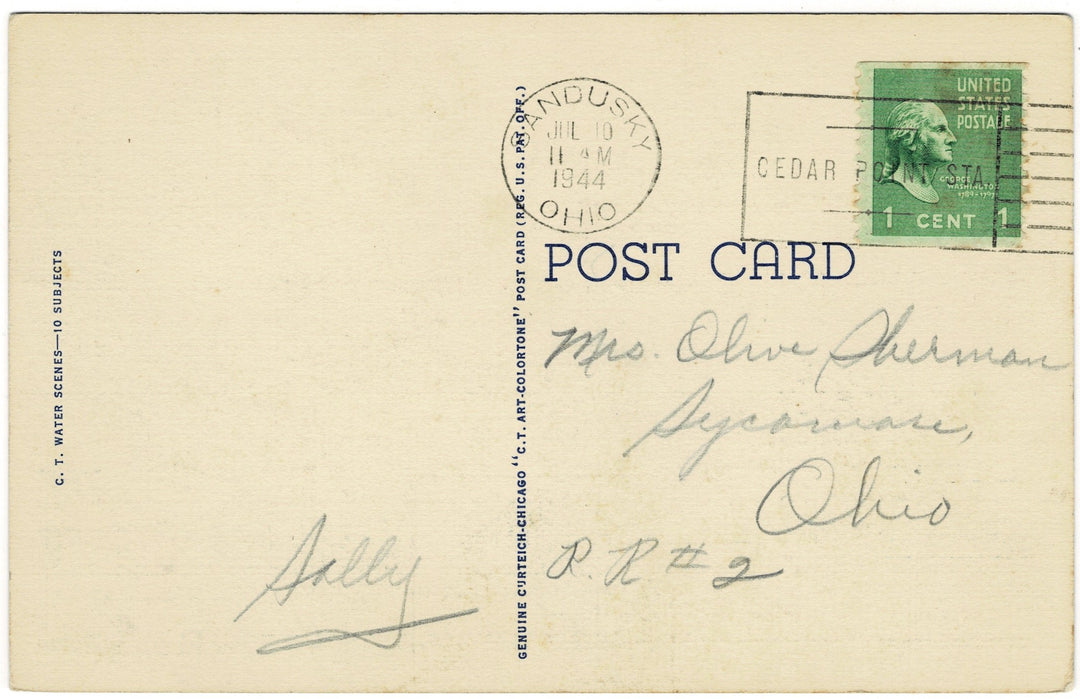 C. T. WATER SCENES—10 SUBJECTS
Sally
GENUINE CURTEICH-CHICAGO "C.T. ART-COLORTONE" POST CARD (REG. U.S. PAT. OFF.)
SANDUSKY
JUL 10
11 AM
1944
OHIO
CEDAR POINT STA.
UNITED
STATES
POSTAGE
GEORGE
WASHINGTON
1789-1797
1 CENT 1
POST CARD
Mrs. Olive Sherman
Sycamore,
Ohio
R. R # 2